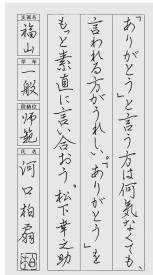 「ありがとう」と言う方は何気なくても、
言われる方がうれしい。「ありがとう」を
もっと素直に言い合おう。 松下幸之助
支部名
福山
学年
一般
段級位
师範
氏名
河口柏扇